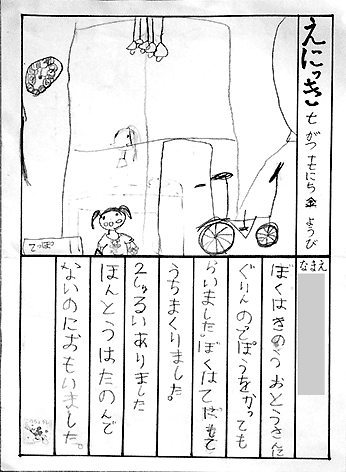 えにっき
七がつ にち 金 ようび
なまえ
ぼくはきのう おとうさんに
ぐりんのでぽうをかっても
らいました。ぼくは
うちまくりました。
2しゅるいありました
ほんとうはたのんで
ないのにおもいました。